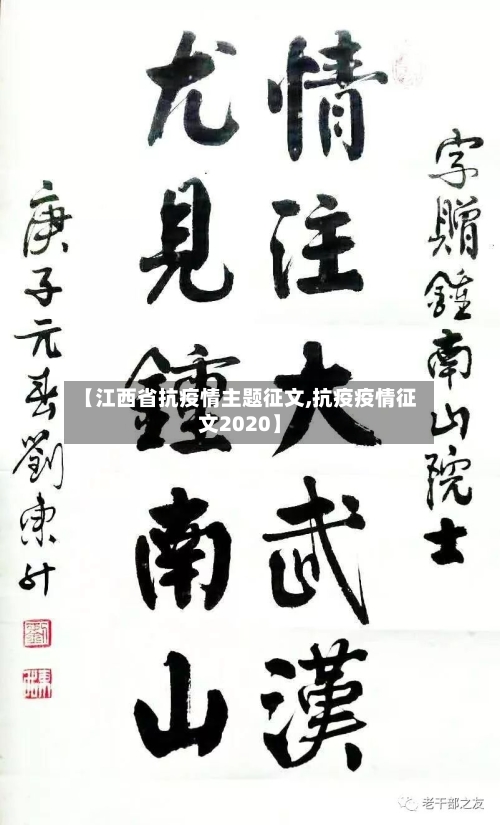 字贈鍾南山院士
情注大武漢
尤見鍾南山
庚子元春劉東升
【江西省抗疫情主题征文,抗疫疫情征
文2020】
老干部之友